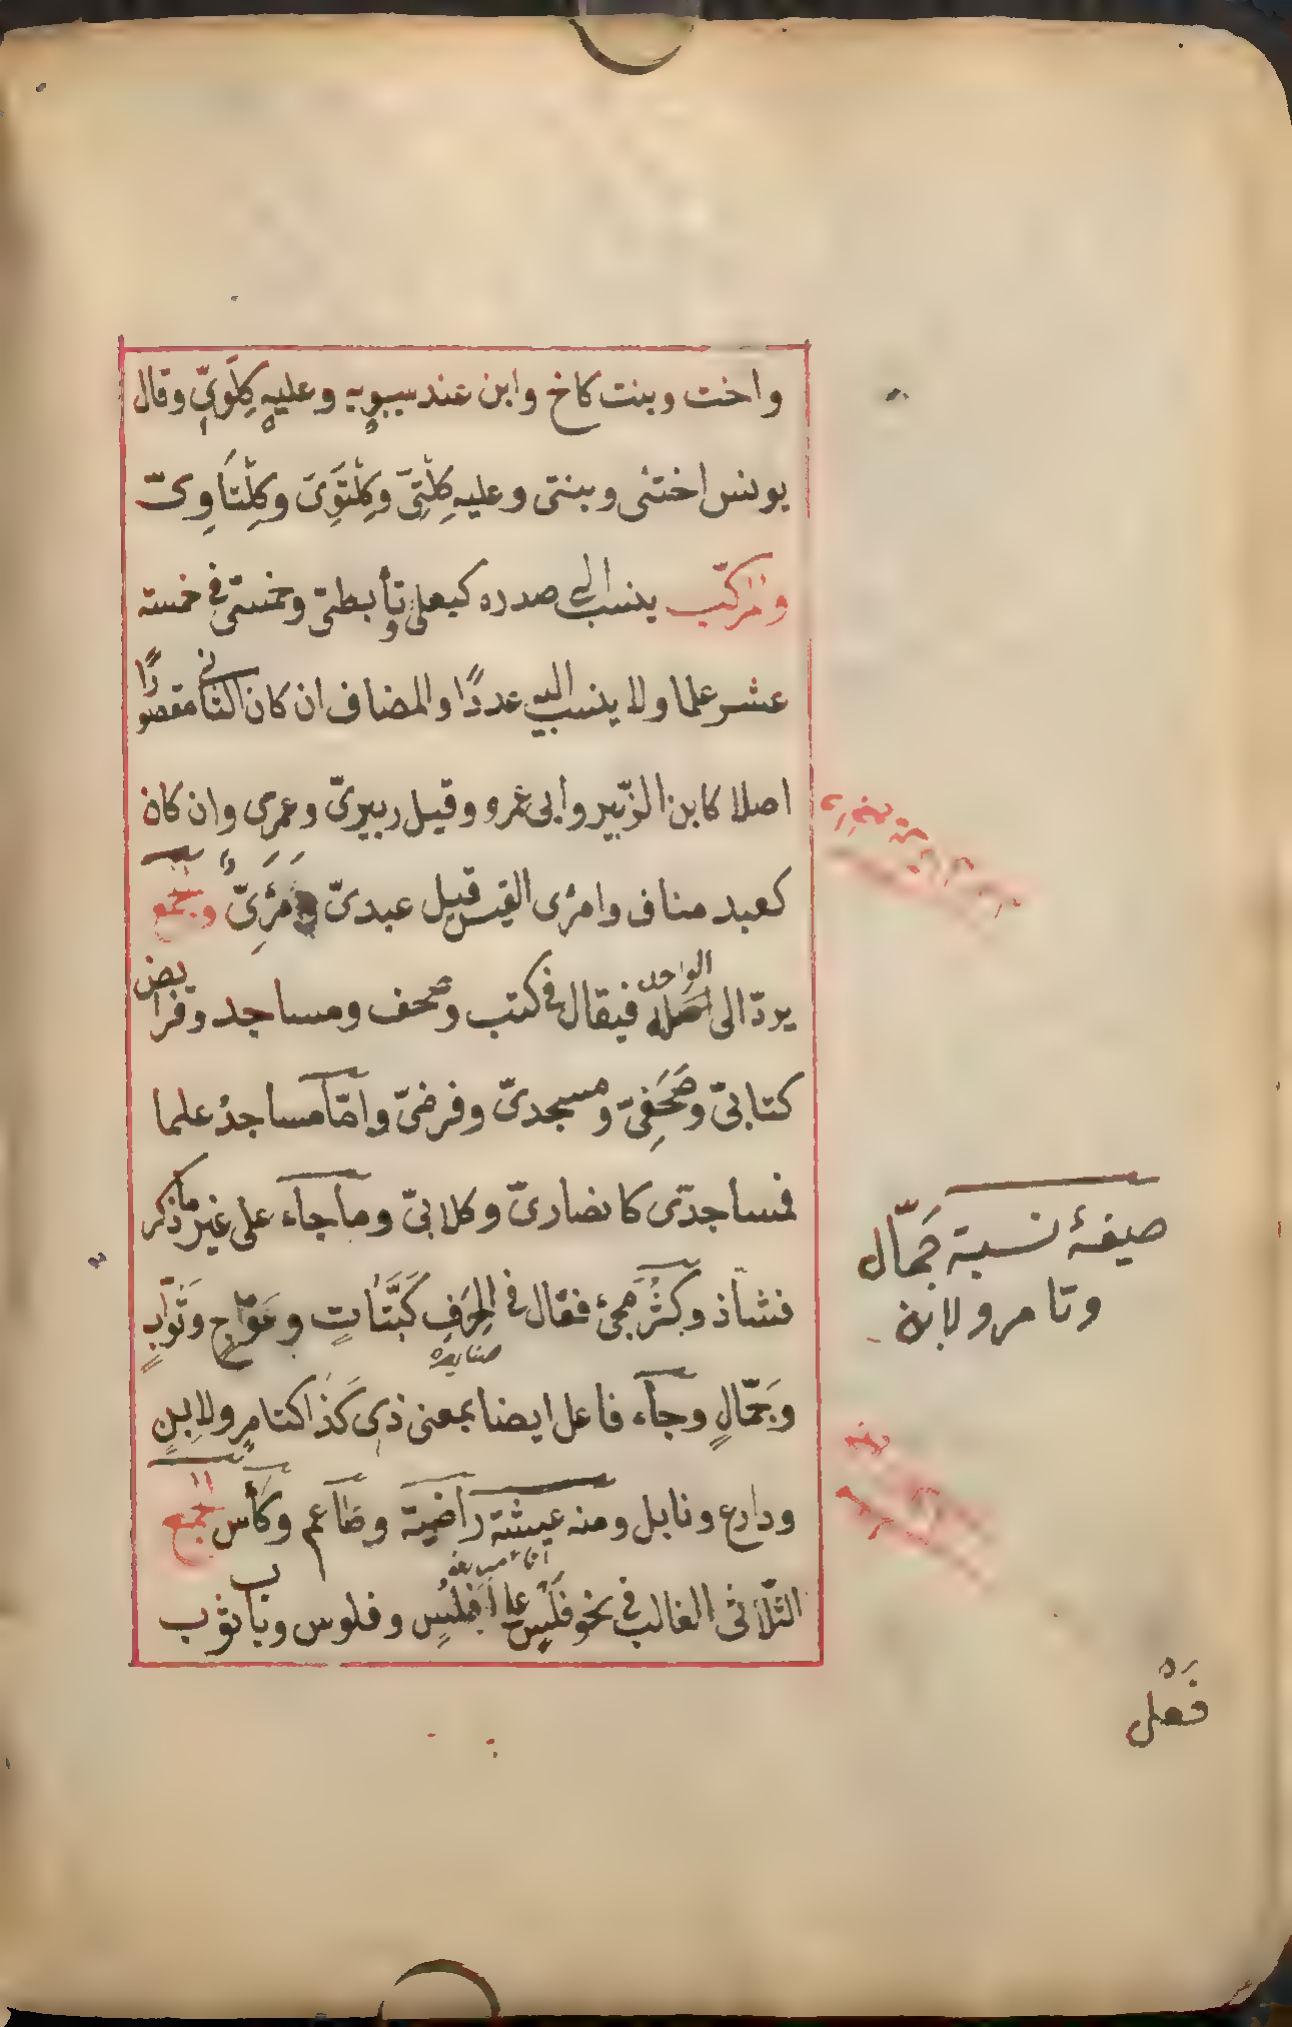 واخت وبنت كاخ وابن عند سيبويه وعليه كِلَويّ وقال
يونس اختىّ وبنتى وعليه كِلْتِىّ وَكِلْتَوِىّ وكِلْتَاوِىّ
والمركّب ينسب الى صدره كبعلى وتأبطىّ وخمسىّ فى خمسة
عشر علما ولا ينسب اليه عددًا والمضاف ان كان الثانى مقصودًا
اصلا كابن الزّبير وابى عمرو وقيل زبيرىّ وعمرى وان كان
كعبد مناف وامرئ القيس قيل عبدىّ ومَرَئِىّ والجمع
يردّ الى الواحد فيقال فى كتب وصحف ومساجد وفرايض
كتابىّ وصَحَفِىّ ومسجدىّ وفرضىّ وامّا مساجدُ علما
فمساجدىّ كانصارىّ وكلابىّ وما جاء على غير ما ذكر
فشاذ وكثر مجئ فعّال فى الحِرَفِ كَبَتَّاتٍ وعَوّاجٍ وَثَوّابٍ
وجَمّالٍ وجاء فاعل ايضا بمعنى ذى كَذا كتامرٍ ولابِنٍ
ودارع ونابل ومنه عيشة راضية وطاعم وكأس الجمع
الثّلاثى الغالب فى نحو فَلْسٍ على اَفْلُسٍ وفلوس وباب ثوب
صيغۀ نسبة جَمّال
وتامر ولابن
فَعْل